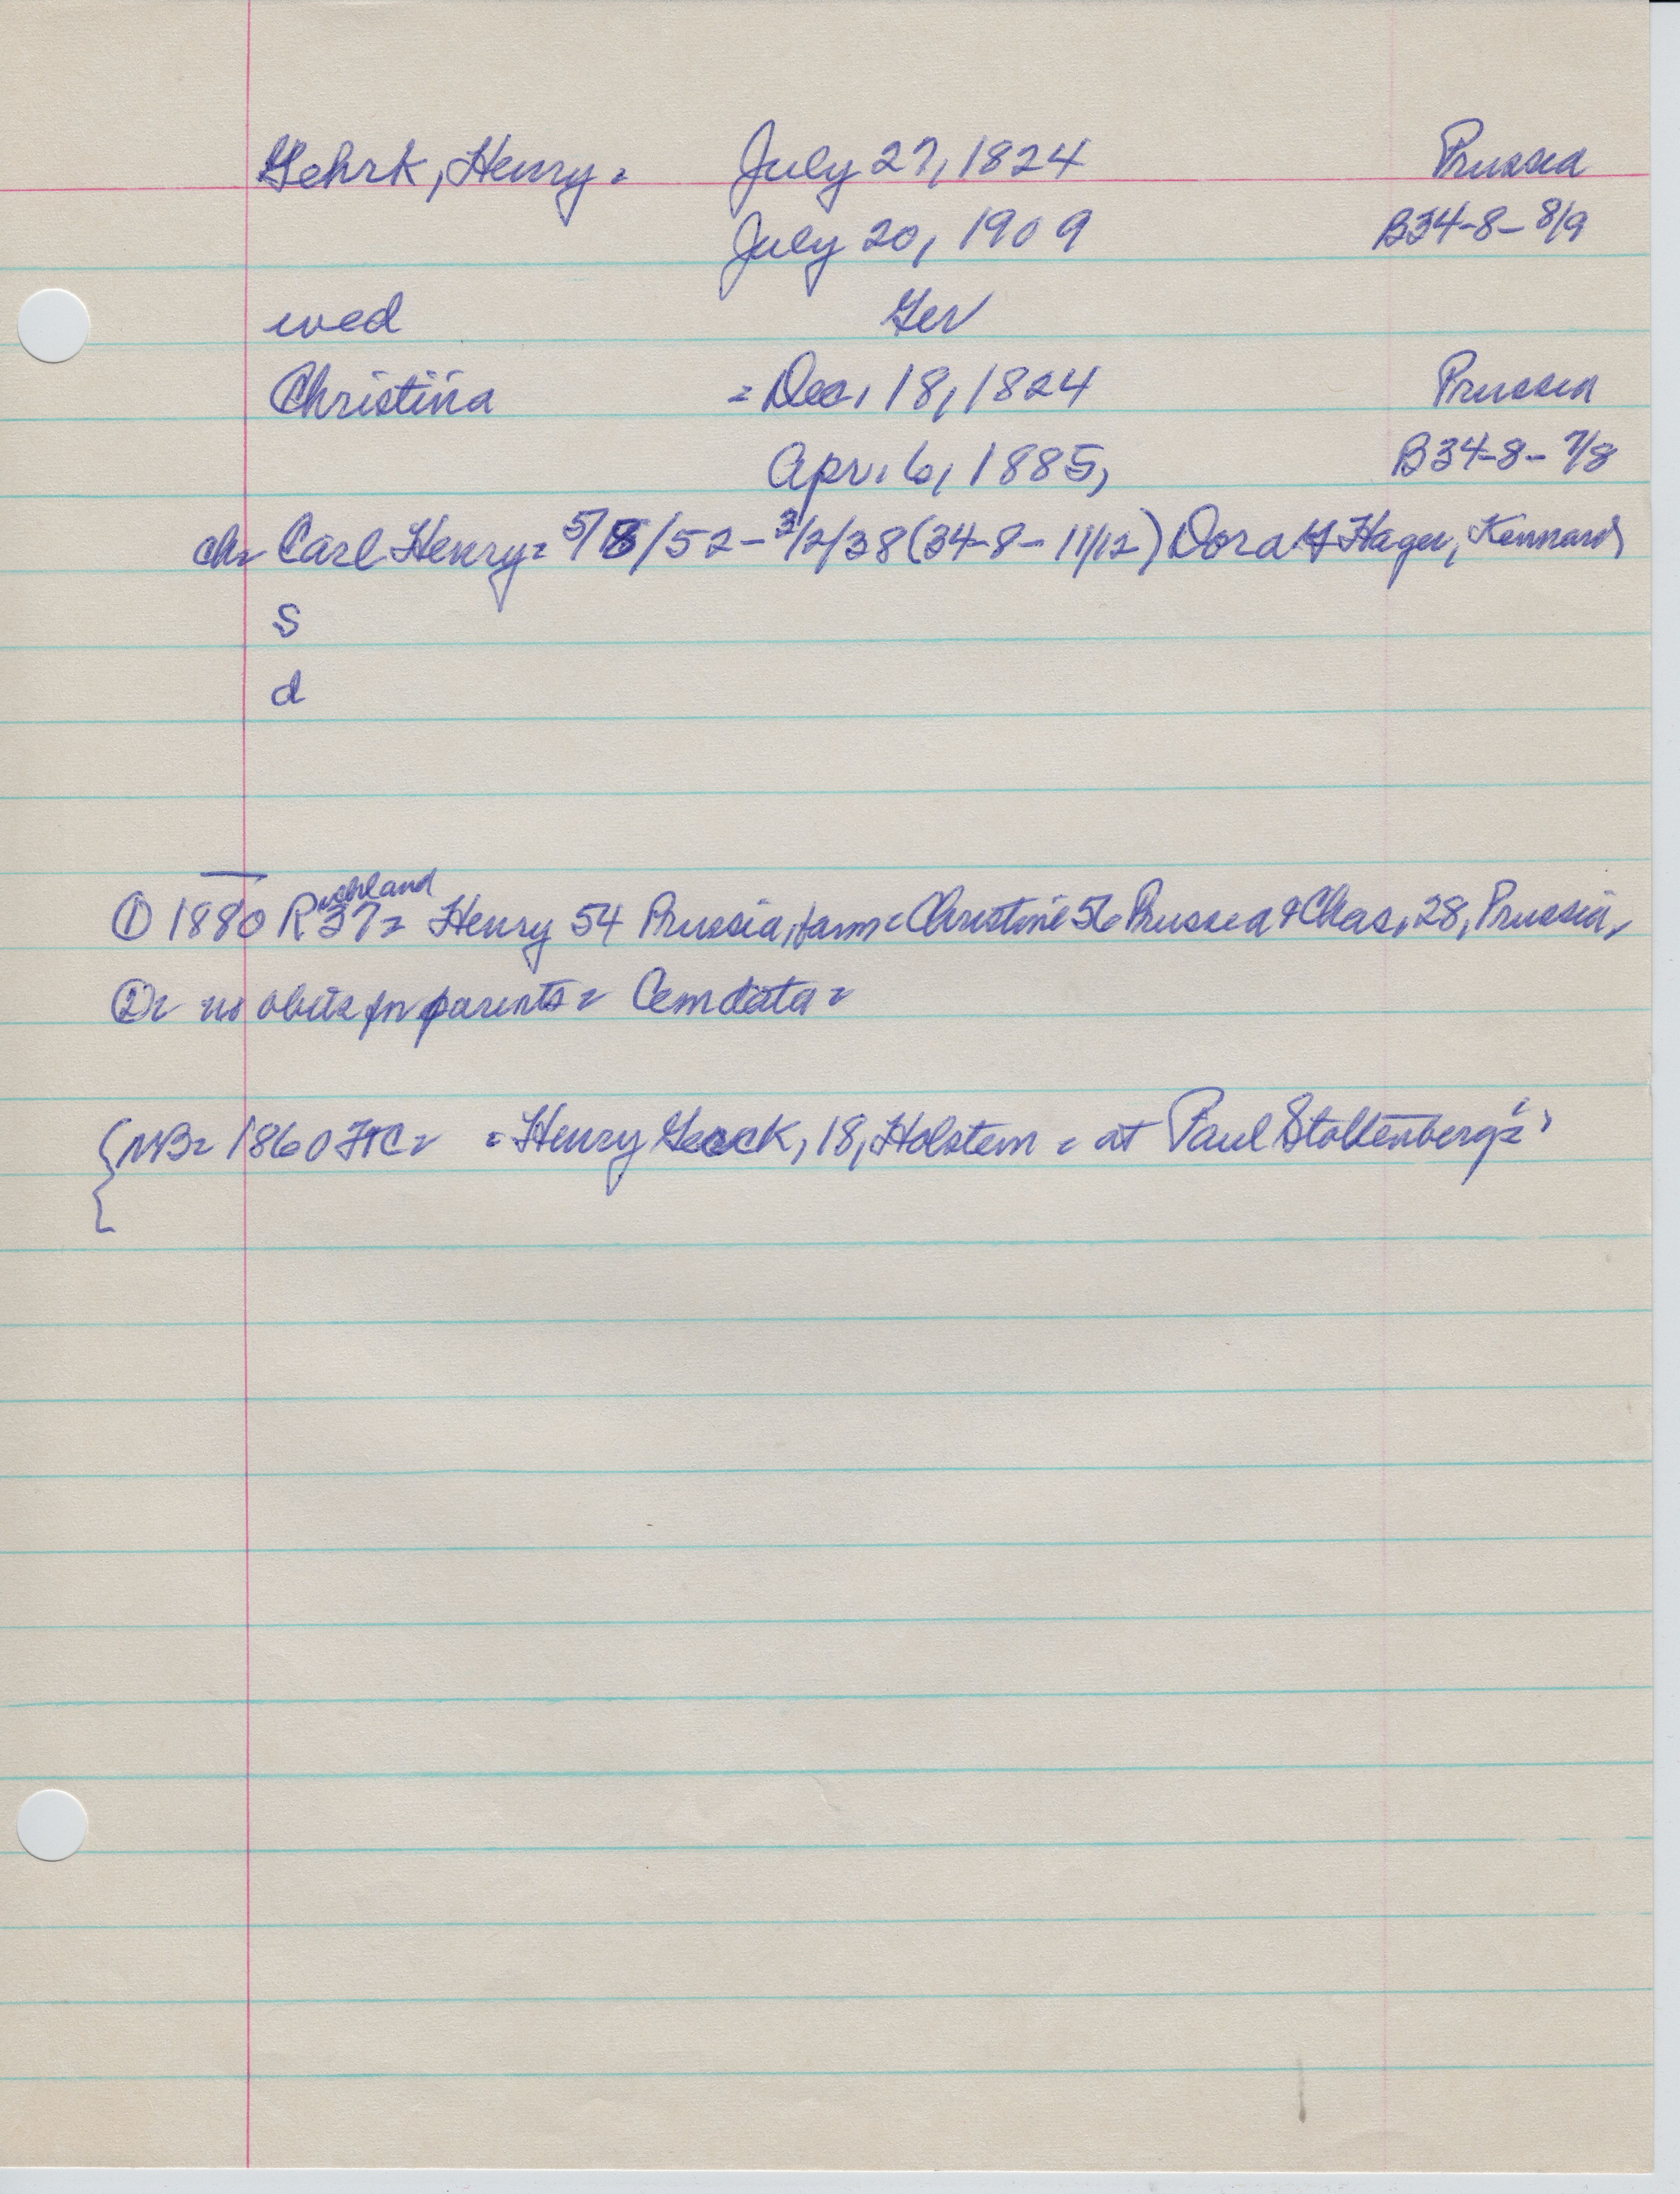 Gehrk, Henry = July 27, 1824 Prussia
July 20, 1909 B34-8-8/9
wed Ger
Christina = Dec. 18, 1824 Prussia
Apr. 6, 1885, B34-8-7/8
ch= Carl Henry= 5/8/52-3/2/38 (34-8-11/12) Dora Hager, Kennard
S
d
① 1880 Richland 37= Henry 54 Prussia, farm= Christine 56 Prussia & Chas, 28, Prussia,
②= no obits for parents= Cem data=
{NB= 1860 = Henry Geack, 18, Holstein = at Paul Stoltenberg's